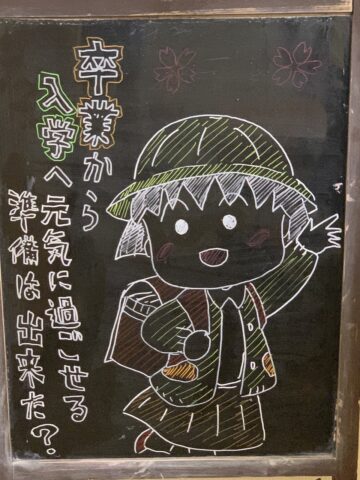 卒業から
入学へ元気に過ごせる
準備は出来た？